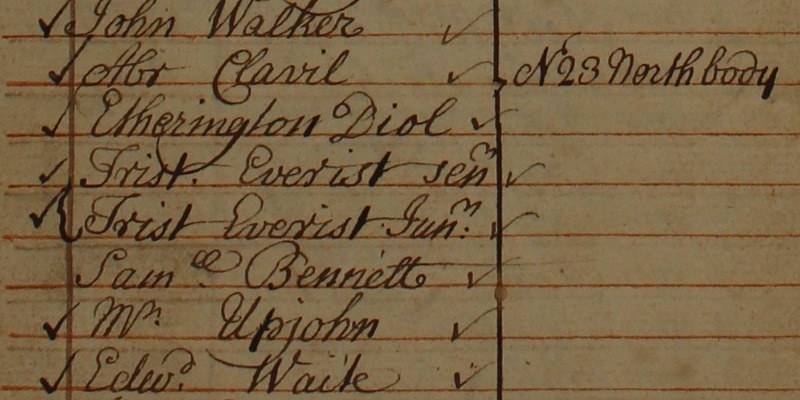 John Walker
Abr Clavil No 23 North body
Etherington Diol
Trist. Everist senr
Trist Everist Junr.
Samll. Bennett
Mr. Upjohn
Edwd. Waite